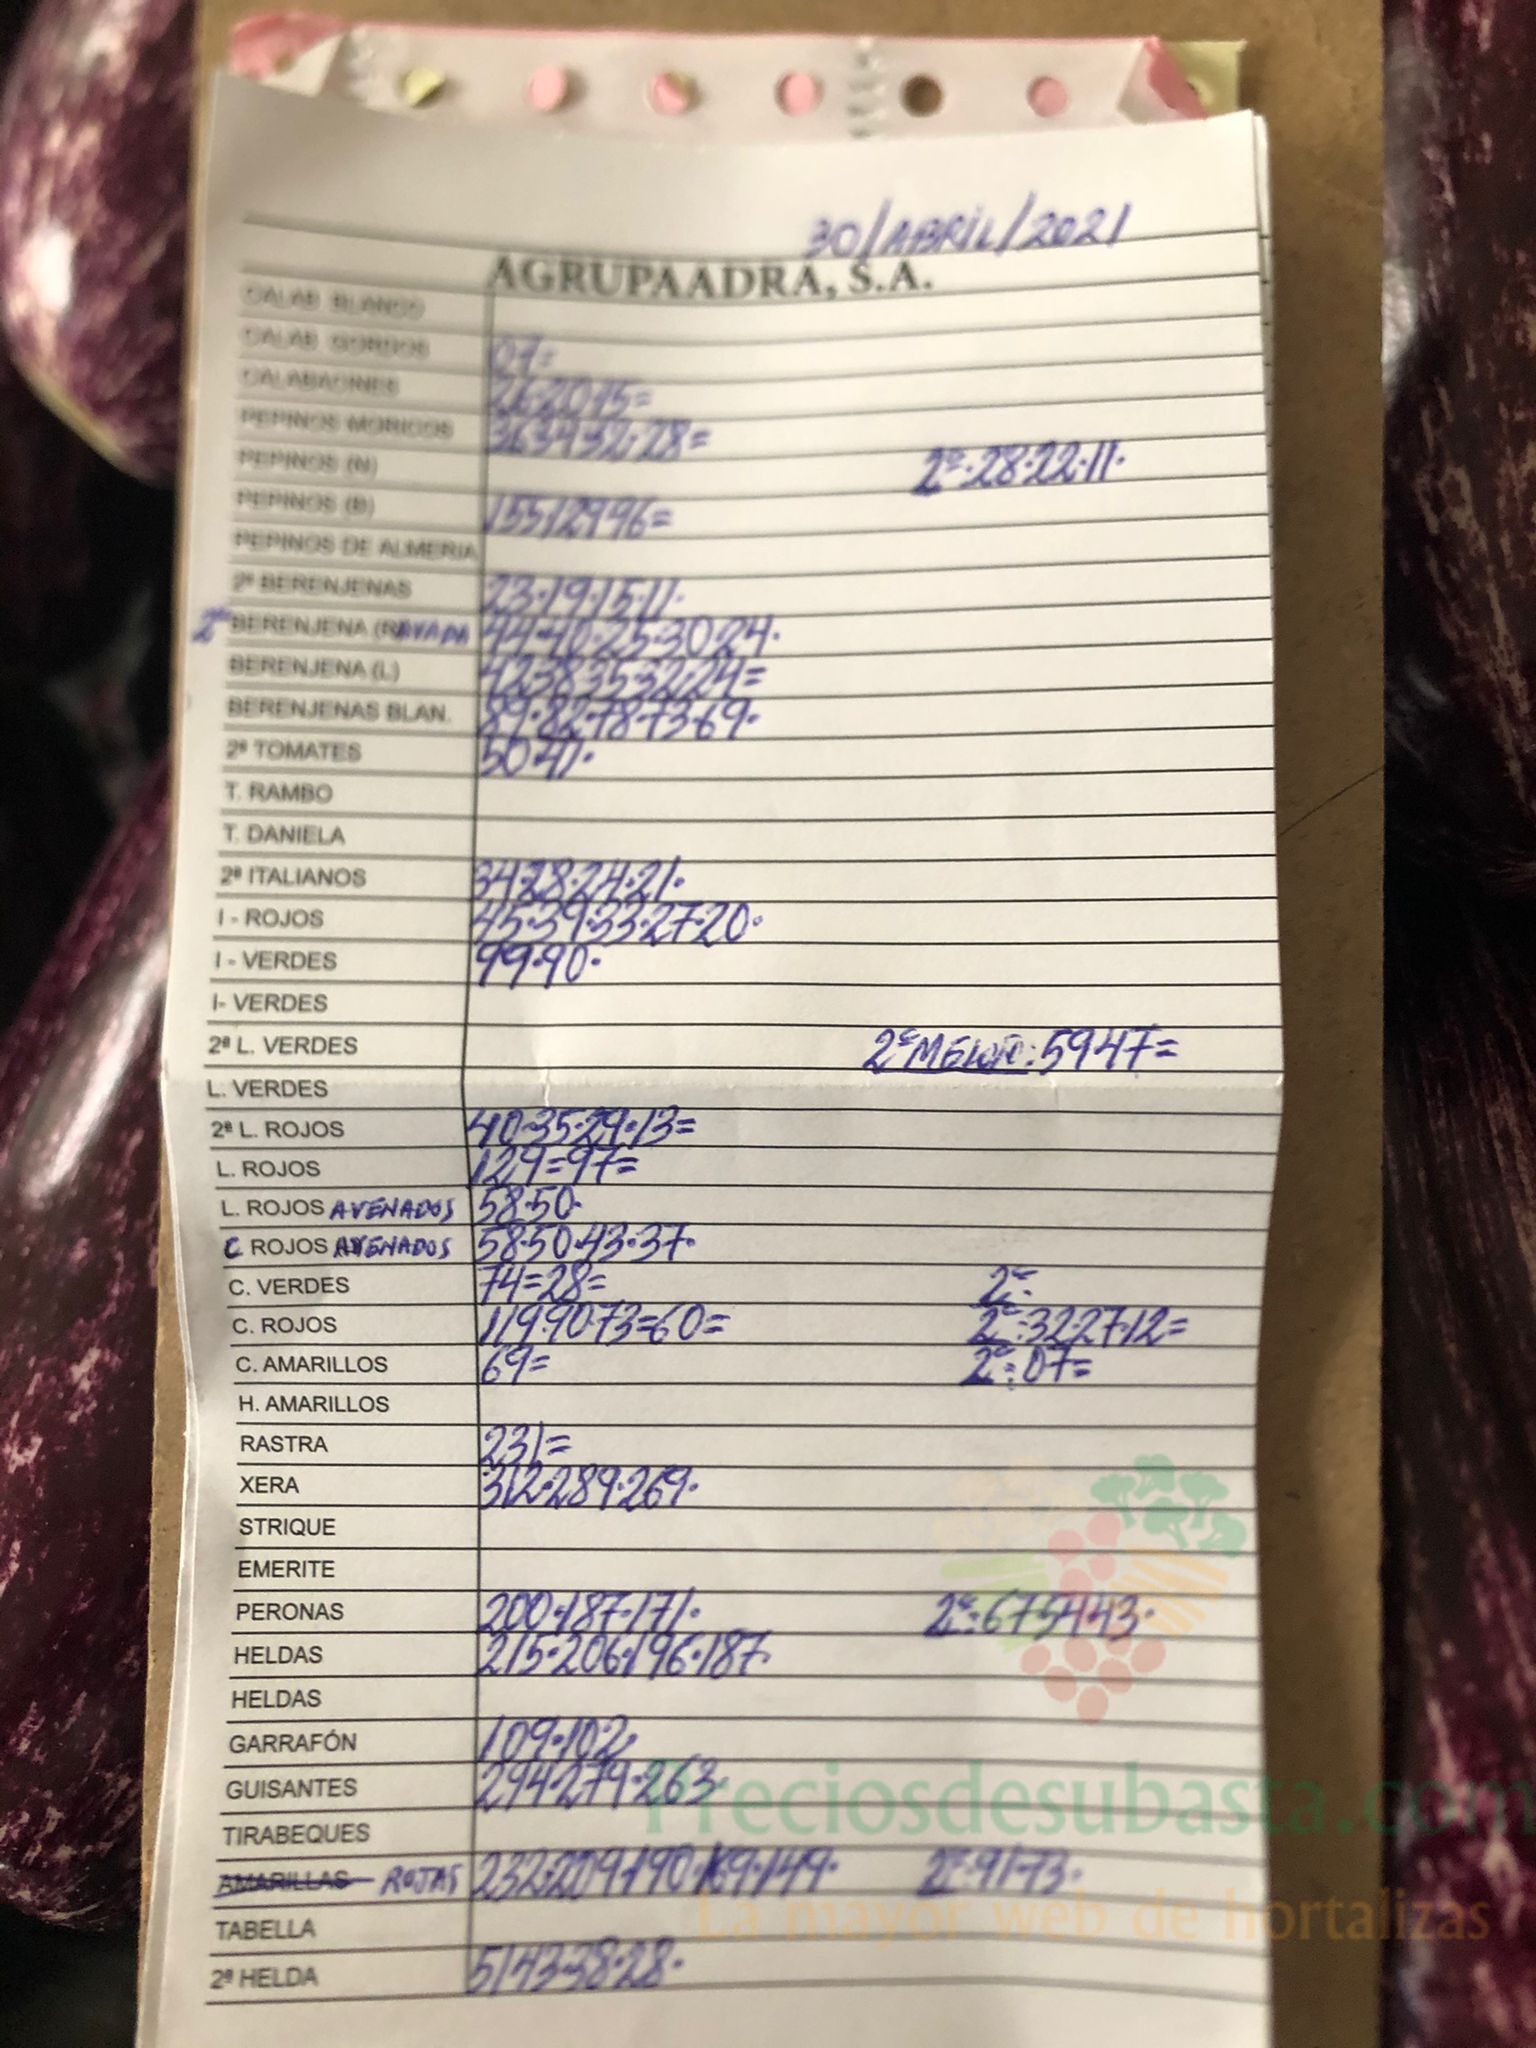 30/ABRIL/2021
AGRUPAADRA, S.A.
CALAB BLANCO
CALAB GORDOS 07=
CALABACINES 26·20·15=
PEPINOS MORICOS 363432·28=
PEPINOS (N) 2ª·28·22·11·
PEPINOS (B) 15512996=
PEPINOS DE ALMERIA
2ª BERENJENAS 23·19·15·11·
2ª BERENJENA (RAYADA 44·40·25·30·24·
BERENJENA (L) 42383532·24=
BERENJENAS BLAN. 89·82·78·73·69·
2ª TOMATES 50·41·
T. RAMBO
T. DANIELA
2ª ITALIANOS 34·28·24·21·
I - ROJOS 45·39·33·27·20·
I - VERDES 99·90·
I- VERDES
2ª L. VERDES 2ª 5947=
L. VERDES
2ª L. ROJOS 40·35·29·13=
L. ROJOS 129=97=
L. ROJOS AVENADOS 58·50·
C ROJOS AVENADOS 58·50·43·37·
C. VERDES 74=28= 2ª:
C. ROJOS 119·90·73=60= 2ª:3227·12=
C. AMARILLOS 69= 2ª:07=
H. AMARILLOS
RASTRA 231=
XERA 312·289·269·
STRIQUE
EMERITE
PERONAS 200·187·171· 2ª:675443·
HELDAS 215·206·196·187
HELDAS
GARRAFÓN 109·102
GUISANTES 294·279·263
Preciosdesubasta.com
TIRABEQUES
AMARILLAS ROJAS 232·209·190·169·149· 2ª·91·73·
La mayor web de hortalizas
TABELLA
2ª HELDA 51433828·